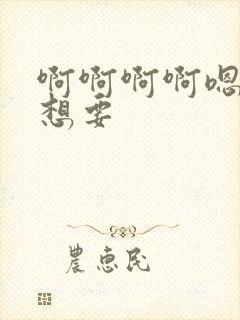 啊啊啊啊嗯
想要
農恵民